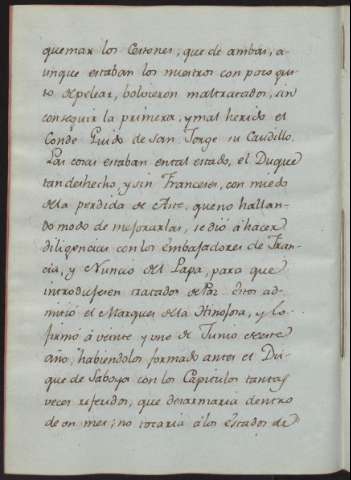 quemar los Cestones, que de ambas, a-
unque estaban los nuestros con poco gus-
to de pelear, bolvieron maltratados, sin
conseguir la primera, y mal herido el
Conde Guido de San Jorge su Caudillo.
Las cosas estaban en tal estado, el Duque
tan deshecho, y sin Franceses, con miedo
de la perdida de Aste, que no hallan-
do modo de mejorarlas, se dió á hacer
diligencias con los Embajadores de Fran-
cia, y Nuncio del Papa, para que
introdujesen tratados de Paz. Estos ad-
mitió el Marques de la Hinojosa, y lo
firmó á veinte y uno de Junio de este
año, habiendolos formado antes el Du-
que de Saboya con los Capitulos tantas
veces referidos, que desarmaria dentro
de un mes; no tocaria á los estados de